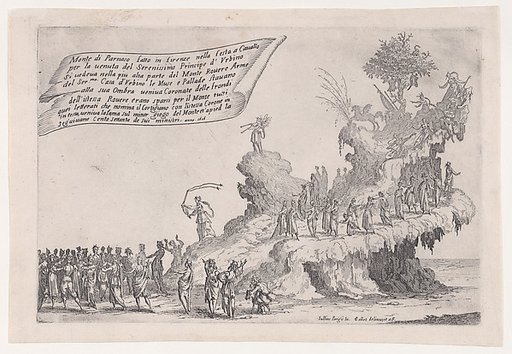 Monte di Parnaso fatto in firenze nella festa a Cauallo
per la uenuta del Serenissimo Principe d'Vrbino
Si uedeua nella piu alta parte del Monte Rouere Arme
del Ser.mo Casa d'Vrbino le Muse e Pallade stauano
alla sua Ombra ueniua Coronate delle frondi
dell'istessa Rouere erano sparsi per il Monte tutti
quei letterati che nomina il Cortigiano con l'istessa Corone in
testa, ueniua la fama sul minor giogo del Monte
seguiuano Cento settanta de suoi ministri
Iullius Parigii In. Callot delineauit et F.